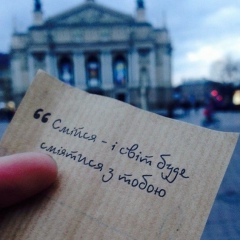 “Смійся - і світ буде
сміятися з тобою